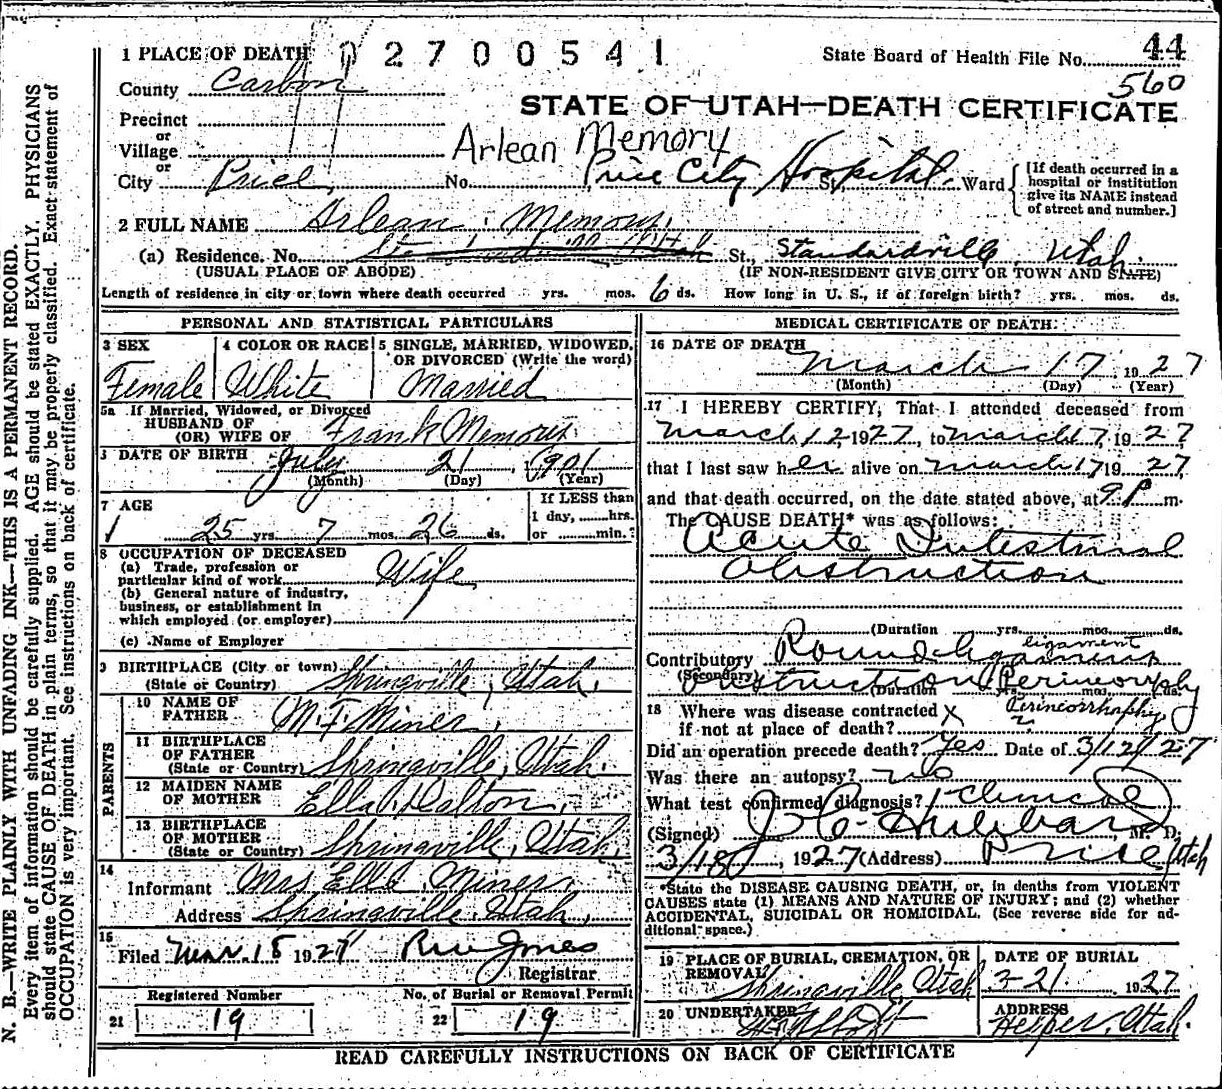 1 PLACE OF DEATH 02700541 State Board of Health File No. 44
County Carbon 560
STATE OF UTAH—DEATH CERTIFICATE
Precinct
or
Village Arlean Memory
or
City Price, No. Price City Hospital St., Ward [If death occurred in a hospital or institution give its NAME instead of street and number.]
2 FULL NAME Arlean Memory,
(a) Residence. No. St., Standardville, Utah.
(USUAL PLACE OF ABODE) (IF NON-RESIDENT GIVE CITY OR TOWN AND STATE)
Length of residence in city or town where death occurred yrs. mos. 6 ds. How long in U. S., if of foreign birth? yrs. mos. ds.
PERSONAL AND STATISTICAL PARTICULARS
3 SEX 4 COLOR OR RACE 5 SINGLE, MARRIED, WIDOWED, OR DIVORCED (Write the word)
Female White Married
5a If Married, Widowed, or Divorced
HUSBAND OF
(OR) WIFE OF Frank Memory
DATE OF BIRTH July 21 1901
(Month) (Day) (Year)
7 AGE If LESS than
1 day, hrs.
25 yrs. 7 mos. 26 ds. or min.
8 OCCUPATION OF DECEASED
(a) Trade, profession or
particular kind of work Wife
(b) General nature of industry,
business, or establishment in
which employed (or employer)
(c) Name of Employer
9 BIRTHPLACE (City or town) Springville, Utah.
(State or Country)
PARENTS
10 NAME OF
FATHER M. F. Miner
11 BIRTHPLACE
OF FATHER
(State or Country) Springville, Utah.
12 MAIDEN NAME
OF MOTHER Ella Dalton,
13 BIRTHPLACE
OF MOTHER
(State or Country) Springville, Utah
14
Informant Mrs Ella Miner,
Address Springville, Utah,
15
Filed Mar. 18 1927 Jones
Registrar
Registered Number No. of Burial or Removal Permit
21 19 22 19
MEDICAL CERTIFICATE OF DEATH
16 DATE OF DEATH
March 17 1927
(Month) (Day) (Year)
17 I HEREBY CERTIFY, That I attended deceased from
March 12 1927, to March 17, 1927
that I last saw her alive on March 17, 1927
and that death occurred, on the date stated above, at 9 P m.
The CAUSE DEATH* was as follows:
Acute Intestinal
Obstruction
(Duration yrs. mos. ds.
ligament
Contributory Round ligament
(Secondary)
(Duration yrs. mos. ds.
Perineorrhaphy
18 Where was disease contracted
if not at place of death?
Did an operation precede death? Yes Date of 3/12/27
Was there an autopsy? no
What test confirmed diagnosis? Clinical
(Signed) J. C. Hubbard M. D.
3/18, 1927 (Address) Price Utah
*State the DISEASE CAUSING DEATH, or, in deaths from VIOLENT
CAUSES state (1) MEANS AND NATURE OF INJURY; and (2) whether
ACCIDENTAL, SUICIDAL OR HOMICIDAL. (See reverse side for ad-
ditional space.)
19 PLACE OF BURIAL, CREMATION, OR REMOVAL DATE OF BURIAL
Springville, Utah 3-21 1927
20 UNDERTAKER ADDRESS
Helper, Utah.
READ CAREFULLY INSTRUCTIONS ON BACK OF CERTIFICATE
N. B.—WRITE PLAINLY WITH UNFADING INK—THIS IS A PERMANENT RECORD.
Every item of information should be carefully supplied. AGE should be stated EXACTLY. PHYSICIANS
should state CAUSE OF DEATH in plain terms, so that it may be properly classified. Exact statement of
OCCUPATION is very important. See instructions on back of certificate.